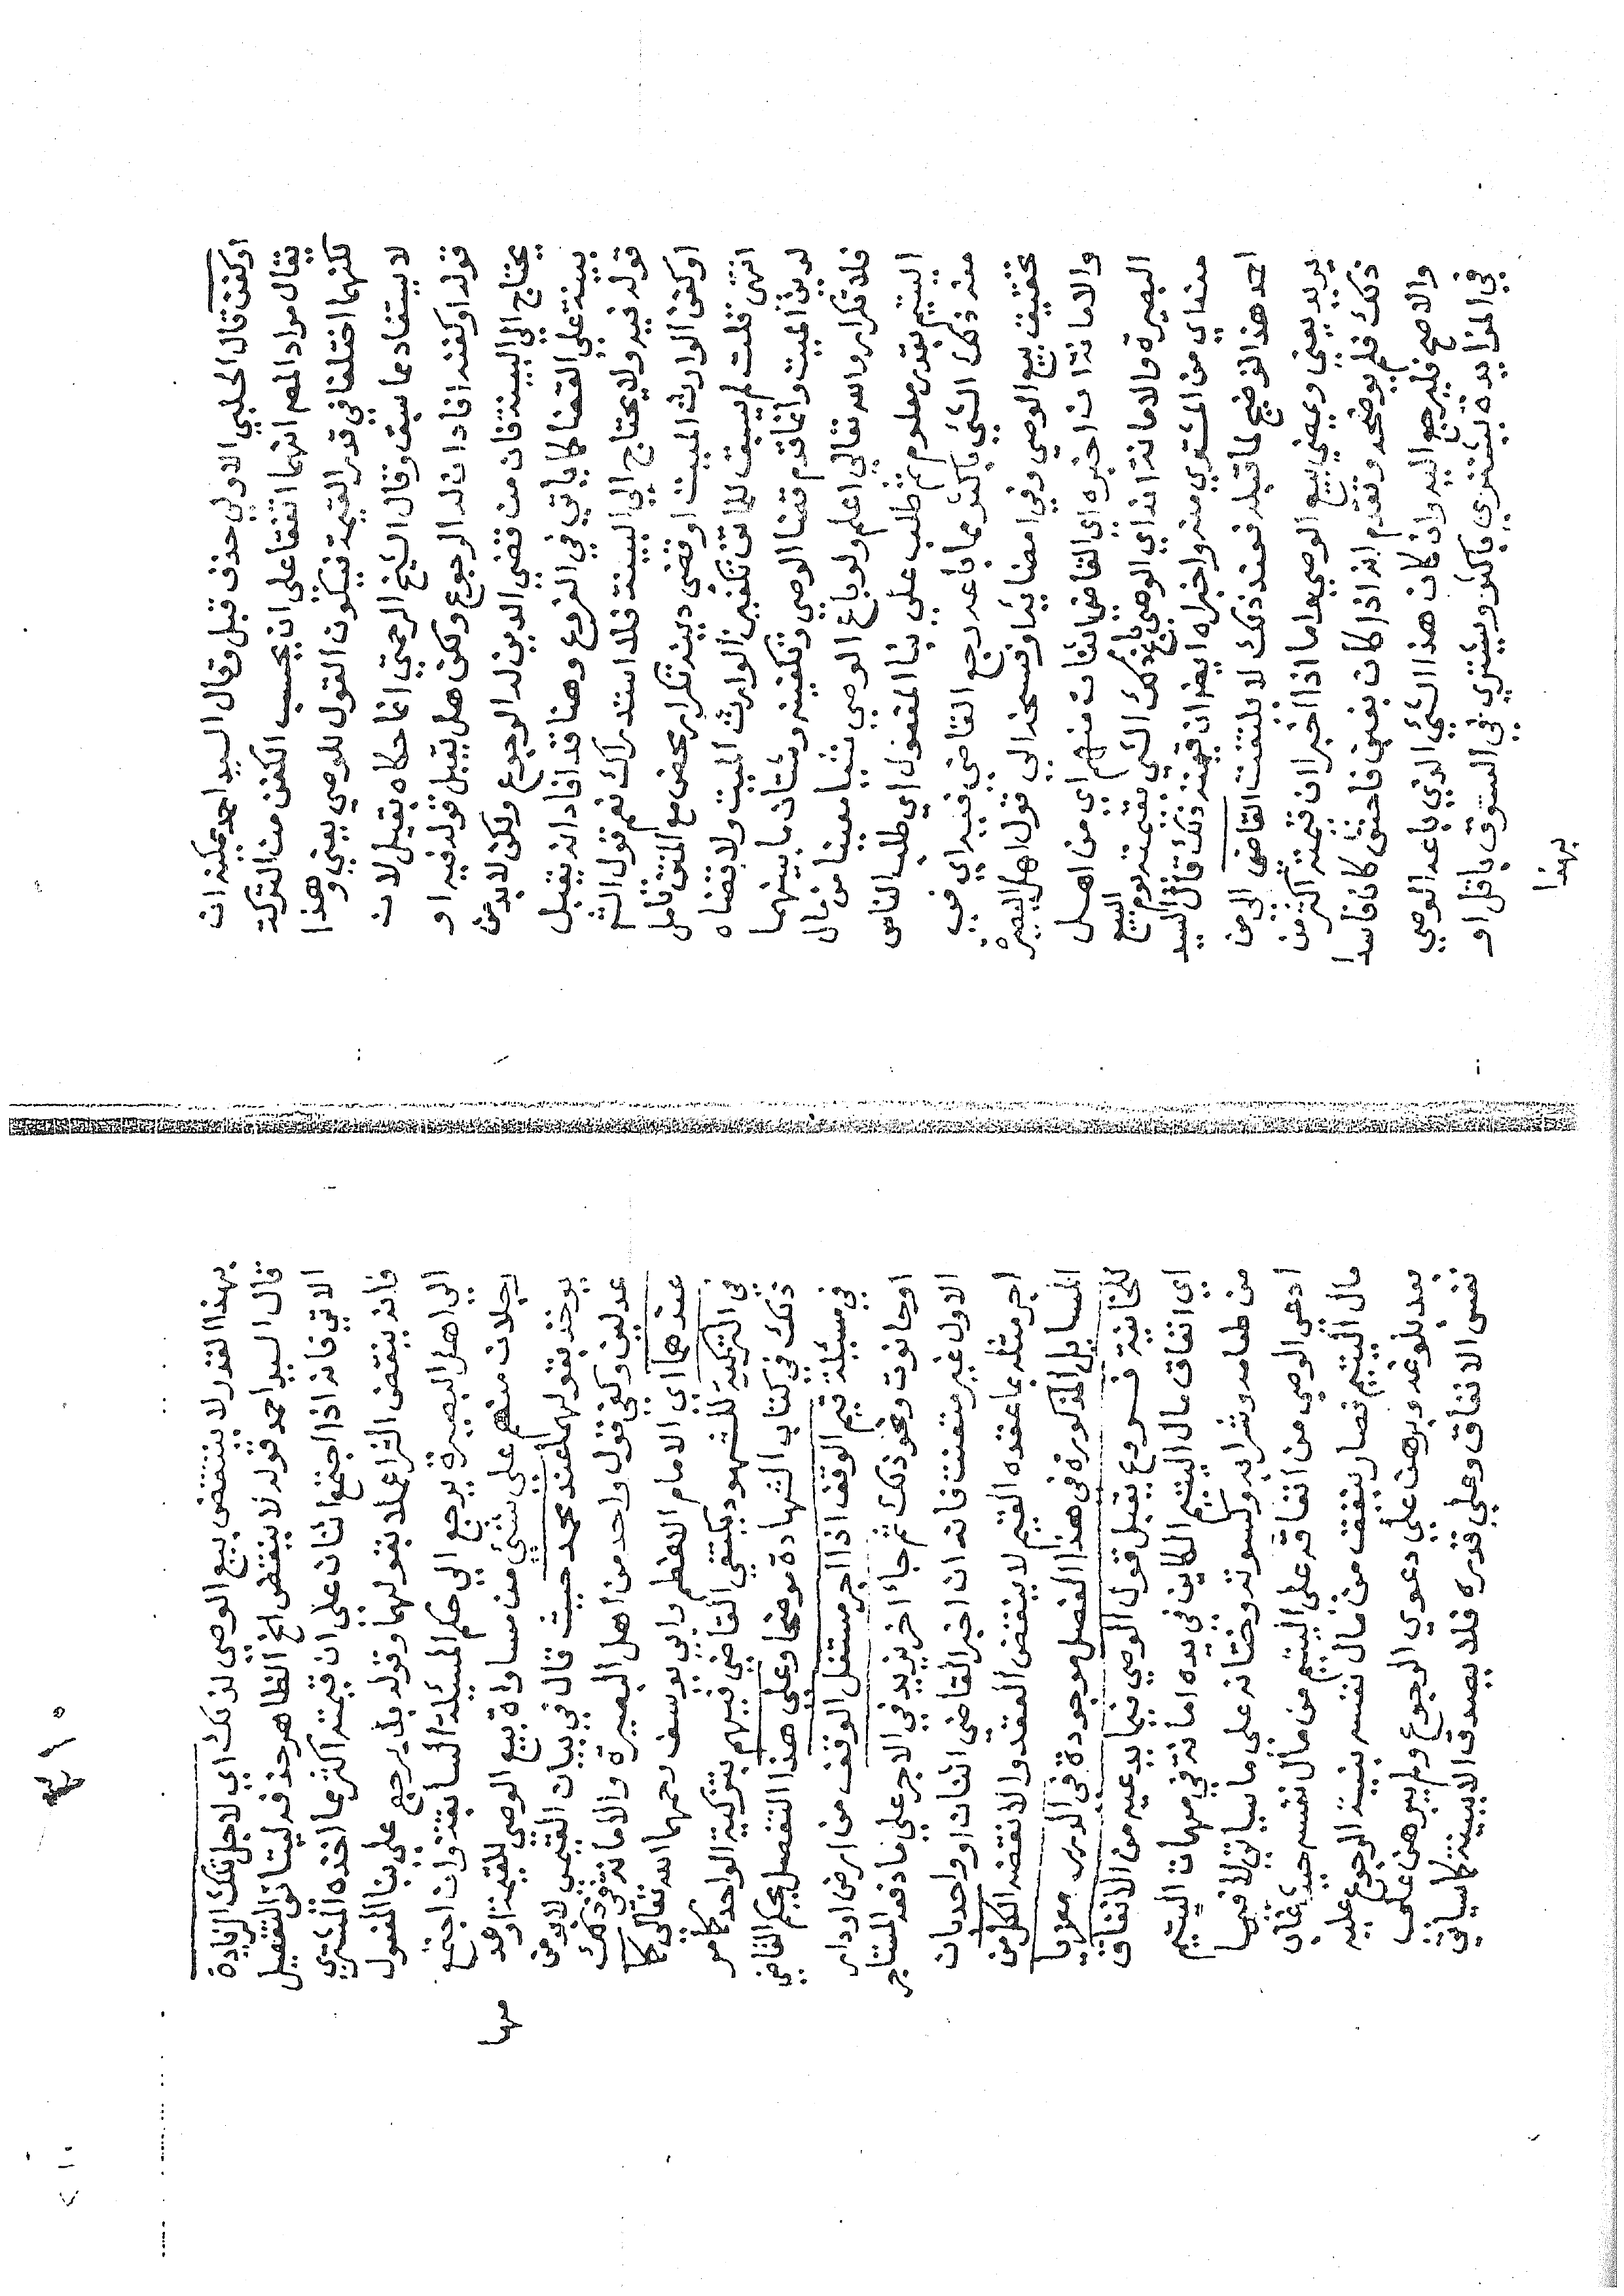 او كفن قال الحلبي الاولى حذف قبل وقال السيد احمد يمكن ان
يقال مراد المص انهما اتفقا على انه يحسب الكفن من التركة
لكنهما اختلفا في قدر القيمة فيكون القول للوصي يعني وهذا
لا يستفاد مما سبق وقال الشيخ الرحمتي انما حكاه بقيل لان
قوله او كفنه افاد ان له الرجوع ولكن هل يقبل قوله فيه او
يحتاج الى البينة فان من قضى الدين له الرجوع ولكن لابد من
بينة على القضا كما ياتي في الفروع وهنا قد افاد انه يقبل
قوله فيه ولا يحتاج الى البينة فلا استدراك نعم قول الشم
او كفن الوارث الميت او قضى دينه تكرار محض مع المتن تامل
انتهى قلت لم يسبق للماتن تكفين الوارث الميت ولا قضاه
لدين الميت وانما قدم قضا الوصي وتكفينه وشتان ما بينهما
فلا تكرار والله تعالى اعلم ولو باع الوصي شيئا معينا من مال
اليتيم بقدر معلوم ثم طلب على بنا المفعول اي طلب الناس
منه ذلك الشيء باكثر مما باعه رجع القاضي فيه اي في
تحقيق بيع الوصي وفي امضا بيعا وفسخه الى قول اهل البصيرة
والامانة ان اخبره اي القاضي اثنان منهم اي من اهل
البصيرة والامانة انه اي الوصي باع ذلك الشيء بقيمته يوم البيع
منه اي من المشتري منه واخبراه ايضا ان قيمته ذلك قال السيد
احمد هذا توضيح لما قبله فعند ذلك لا يلتفت القاضي الى من
يزيد يعني ويمضي بيع الوصي واما اذا اخبر ان قيمته اكثر من
ذلك فلم يوضحه وتقدم انه اذا كان بغبن فاحش كان فاسدا
والاصح فليرجع اليه وان كان هذا الشيء الذي باعه الوصي
في المزايدة يشترى باكثر ويشترى في السوق باقل او
بهذا
بهذا القدر لا ينتقض بيع الوصي لذلك اي لاجل تلك الزيادة
قال السيد احمد قوله لا ينتقض الخ الظاهر حذفه ليتاتى التفصيل
الاتي فانه اذا اجتمع اثنان على ان قيمته اكثر مما اخذه المشتري
فانه ينقض الشراء عملا بقولهما وقوله بل يرجع على بنا المفعول
الى اهل البصيرة يرجع الى حكم المسئلة السابقة وان اجتمع
رجلان منهم على شيء من مساواة بيع الوصي للقيمة او عدمها
يوخذ بقولهما عند محمد حيث قال في بيان القيمي لابد من
عدلين وكفى قول واحد من اهل البصيرة والامانة في ذلك
عندهما اي الامام الاعظم وابي يوسف رحمهما الله تعالى كما
في التزكية للشهود يكتفي القاضي فيهم بتزكية الواحد كما مر
ذلك في كتاب الشهادة موضحا وعلى هذا التفصيل يحكم القاضي
في مسئلة قيم الوقف اذا اجر مستغل الوقف من ارض او دار
او حانوت ونحو ذلك ثم جاء اخر يزيد في الاجر على ما دفعه المستاجر
الاول غير متعنت فانه ان اخبر القاضي اثنان او واحد بان
اجر مثله بما عقده القيم لا ينتقض العقد والا نقضه الكل من
المسايل المذكورة في هذا الفصل موجودة في الدرر معزيا
للخانية فــــروع يقبل قول الوصي فيما يدعيه من الانفاق
اي انفاق مال اليتيم الكاين في يده امانة في مهمات اليتيم
من طعامه وشرابه وكسوته وختانه على ما سياتي لا فيما
ادعى الوصي من انفاقه على اليتيم من مال نفسه حينئذ فان
مال اليتيم فصار ينفق من مال نفسه بنية الرجوع عليه
بعد بلوغه وبرهن على دعوى الرجوع ولم يبرهن على
نفس الانفاق وعلى قدره فلا يصدق الا ببينة كما سياتي